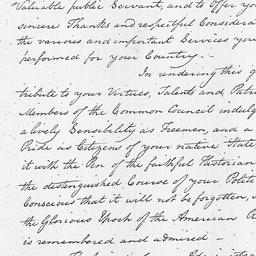 Valuable public Servant, and to Offer you
sincere Thanks and respectful Considera
the various and important Services you
performed for your Country. -
In rendering this
tribute to your Virtues, Talents and Patri
Members of the Common Council indulg
a lively Sensibility as Freemen, and a
Pride as Citizens of your native State
it with the Pen of the faithful Historian
the distinguished Course of your Polit
Conscious that it will not be forgotten,
the Glorious Epoch of the American R
is remembered and admired -